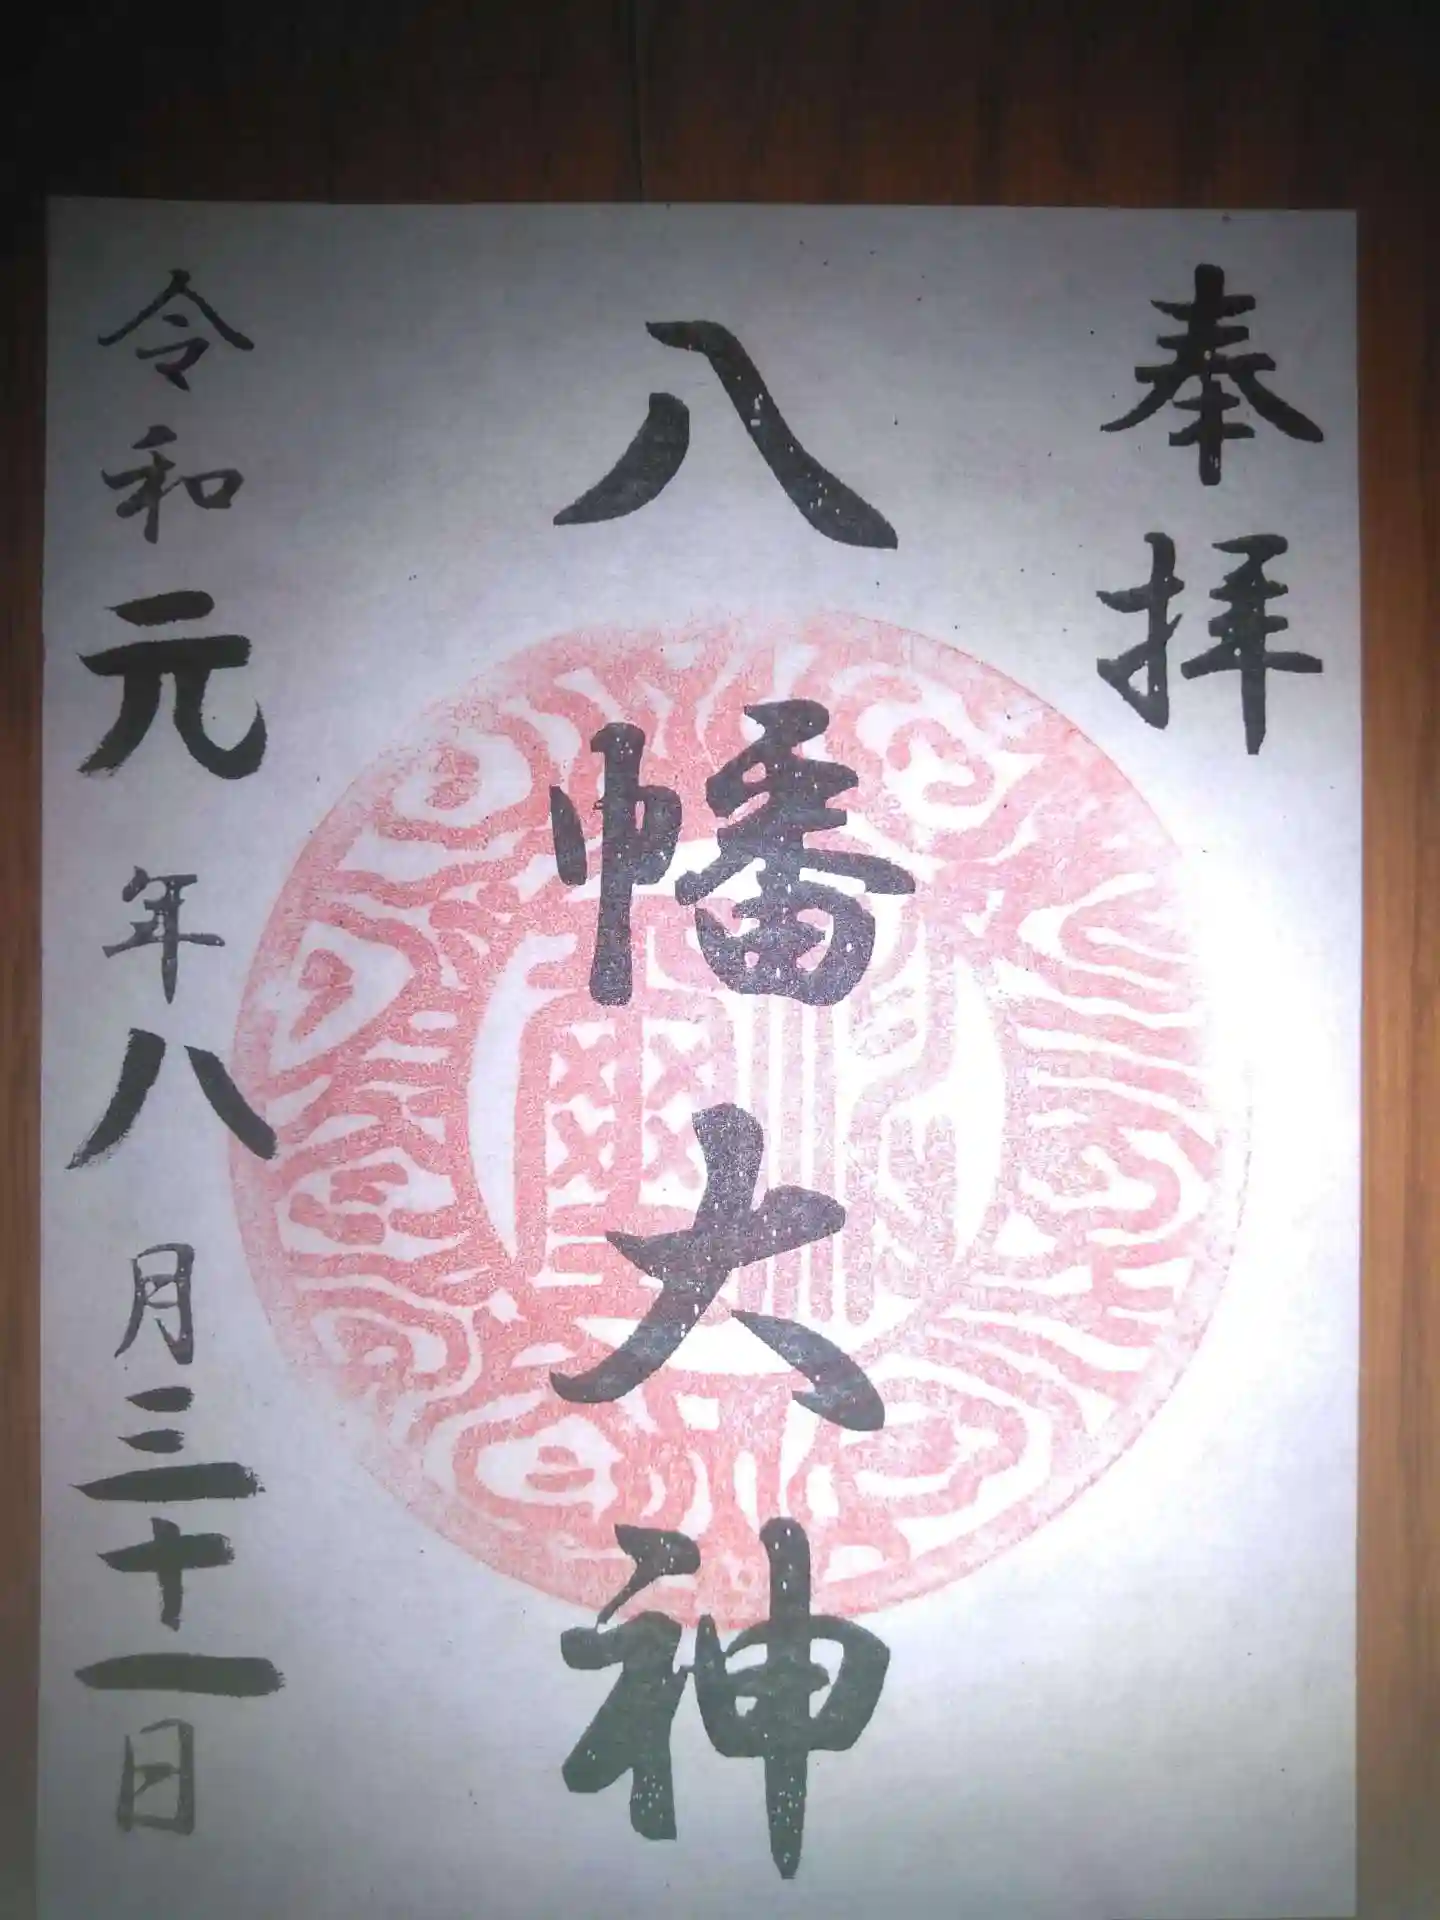 奉拝
八幡大神
令和元年八月三十一日